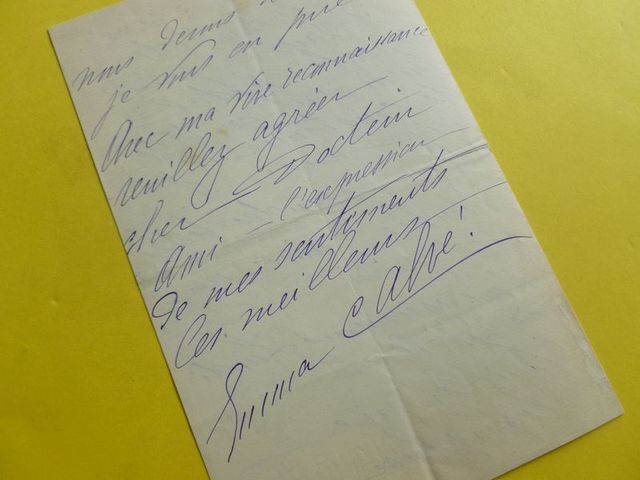 nous
je vous en prie
Avec ma vive reconnaissance
veuillez agréer
cher Docteur
Ami – l'expression
de mes sentiments
les meilleurs
Emma Calvé!